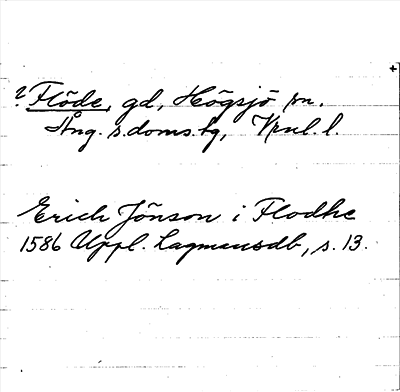 ? Flöde, gd, Högsjö sn.
Ång. s. doms.tg, Vrnl. l.
Erich Jönson i Flodhe
1586 Uppl. Lagmansdb, s. 13.